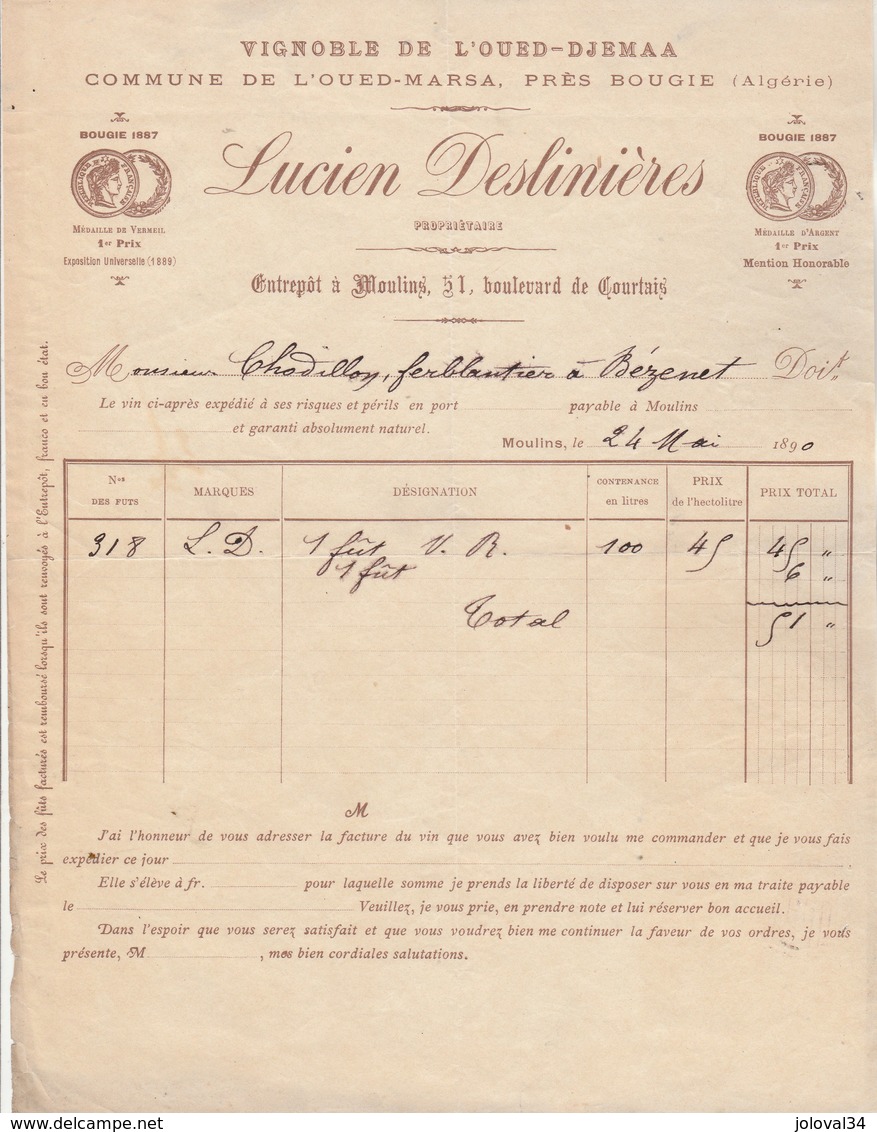 VIGNOBLE DE L'OUED-DJEMAA
COMMUNE DE L'OUED-MARSA, PRÈS BOUGIE (Algérie)
BOUGIE 1887
RÉPUBLIQUE FRANÇAISE
MÉDAILLE DE VERMEIL
1er Prix
Exposition Universelle (1889)
Lucien Deslinières
PROPRIÉTAIRE
Entrepôt à Moulins, 51, boulevard de Courtais
BOUGIE 1887
RÉPUBLIQUE FRANÇAISE
MÉDAILLE D'ARGENT
1er Prix
Mention Honorable
Monsieur Chodillon, ferblantier à Bézenet Doit
Le vin ci-après expédié à ses risques et périls en port payable à Moulins
et garanti absolument naturel.
Moulins, le 24 Mai 1890
Nos DES FUTS MARQUES DÉSIGNATION CONTENANCE en litres PRIX de l'hectolitre PRIX TOTAL
318 L. D. 1 fût V. R. 100 45 45 "
1 fût 6 "
Total 51 "
Le prix des fûts facturés est remboursé lorsqu'ils sont renvoyés à l'Entrepôt, franco et en bon état.
M
J'ai l'honneur de vous adresser la facture du vin que vous avez bien voulu me commander et que je vous fais
expédier ce jour
Elle s'élève à fr. pour laquelle somme je prends la liberté de disposer sur vous en ma traite payable
le Veuillez, je vous prie, en prendre note et lui réserver bon accueil.
Dans l'espoir que vous serez satisfait et que vous voudrez bien me continuer la faveur de vos ordres, je vous
présente, M , mes bien cordiales salutations.
www.delcampe.net
joloval34